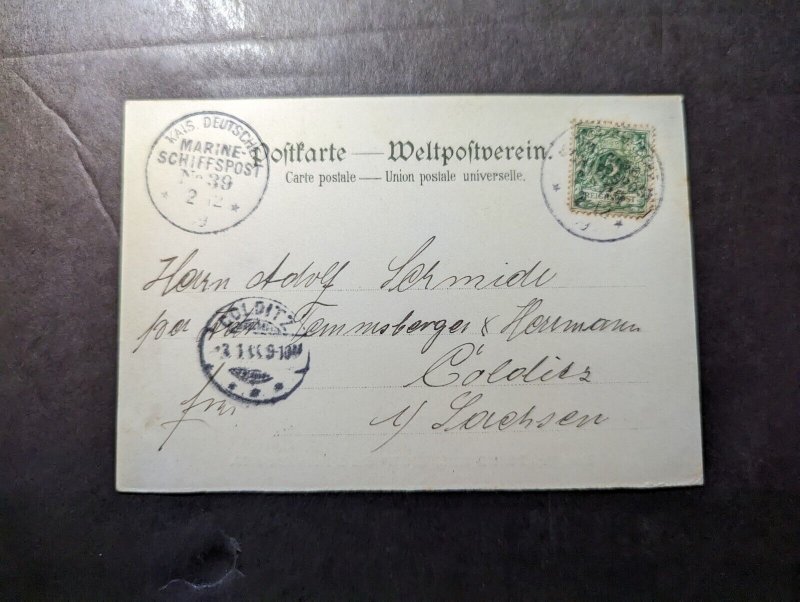 KAIS. DEUTSCHE
MARINE-
SCHIFFSPOST
No 39
2 12
9
Postkarte — Weltpostverein.
Carte postale — Union postale universelle.
5
Herrn Adolf Schmidt
per Tammsberger & Hoffmann
COLDITZ
3.1. 9-10
Colditz
frei
i/ Sachsen